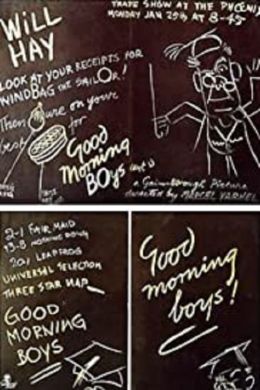 WILL
HAY
TRADE SHOW AT THE PHOENIX
MONDAY JAN 25th AT 8-45
LOOK AT YOUR RECEIPTS FOR
WINDBAG THE SAILOR!
Then on your
best for
Good
Morning
BOys
a Gainsborough Picture
directed by MARCEL VARNEL
2-1 FAIR MAID
20/1 LEAPFROG
UNIVERSAL SELECTION
THREE STAR NAP
GOOD
MORNING
BOYS
Good
morning
boys!